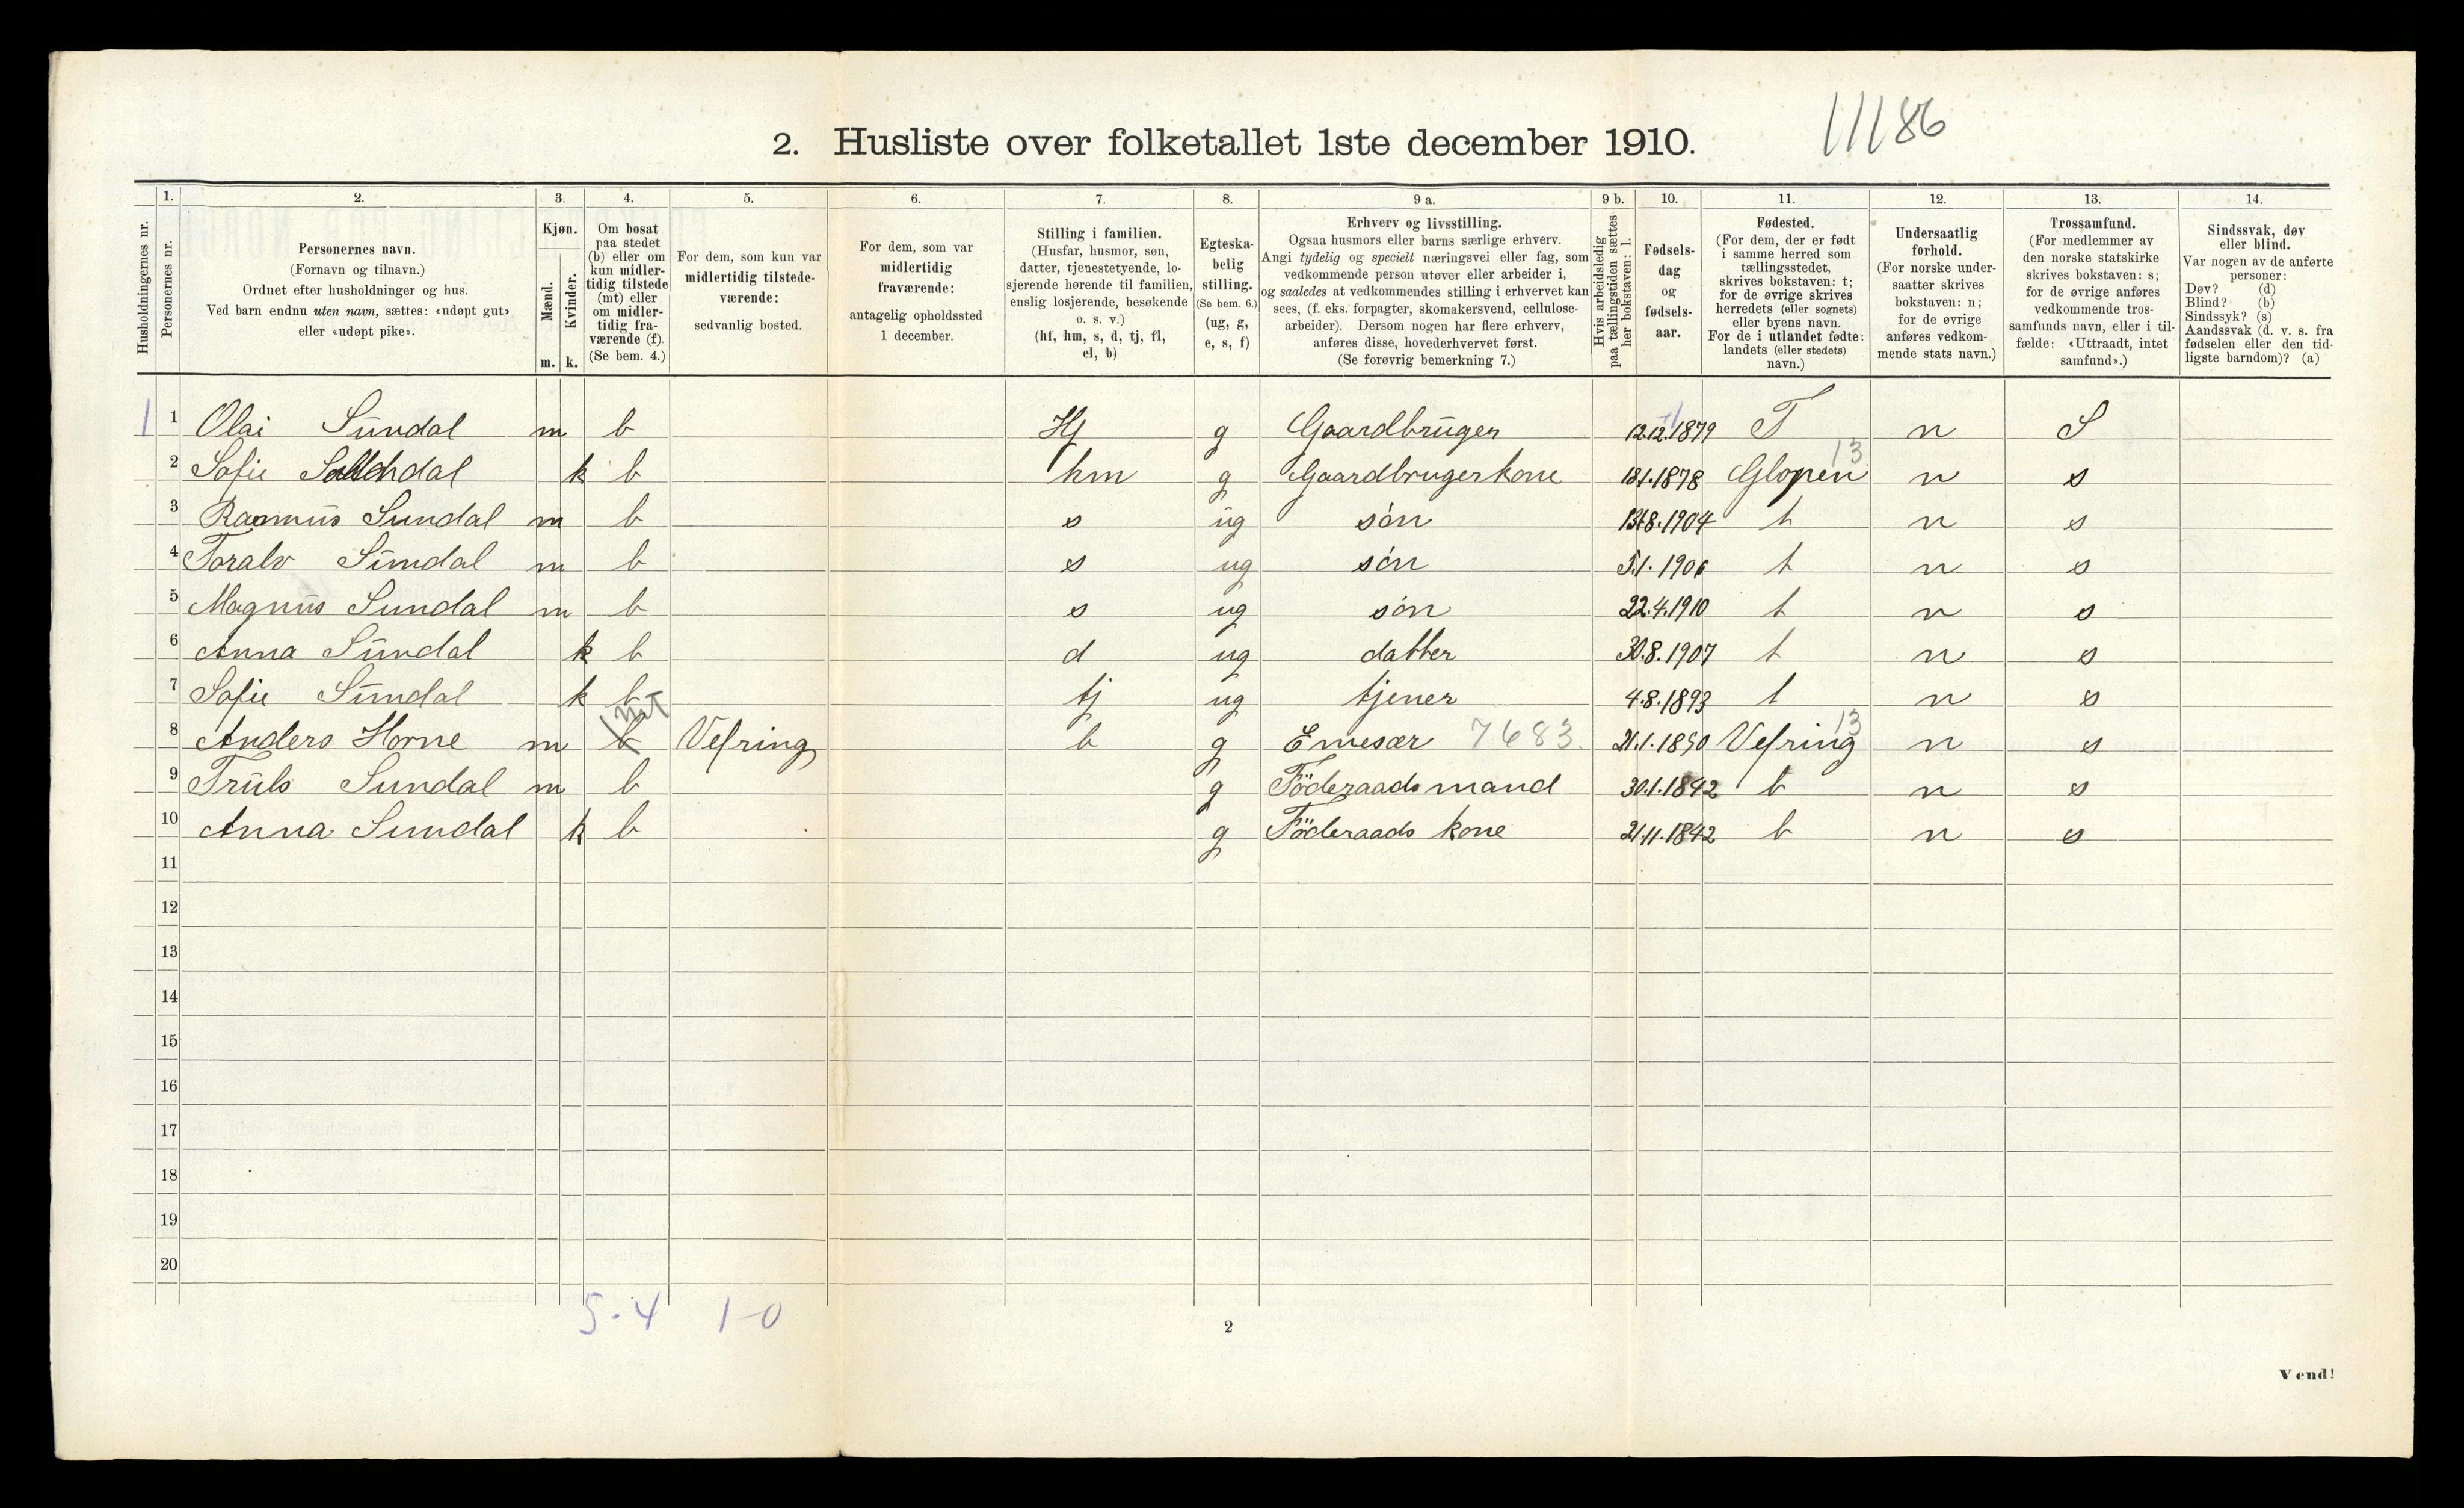 11186
2. Husliste over folketallet 1ste december 1910.
Husholdningernes nr.
1.
Personernes nr.
2.
Personernes navn.
(Fornavn og tilnavn.)
Ordnet efter husholdninger og hus.
Ved barn endnu uten navn, sættes: «udøpt gut»
eller «udøpt pike».
3.
Kjøn.
Mænd.
Kvinder.
m. k.
4.
Om bosat
paa stedet
(b) eller om
kun midler-
tidig tilstede
(mt) eller
om midler-
tidig fra-
værende (f).
(Se bem. 4.)
5.
For dem, som kun var
midlertidig tilstede-
værende:
sedvanlig bosted.
6.
For dem, som var
midlertidig
fraværende:
antagelig opholdssted
1 december.
7.
Stilling i familien.
(Husfar, husmor, søn,
datter, tjenestetyende, lo-
sjerende hørende til familien,
enslig losjerende, besøkende
o. s. v.)
(hf, hm, s, d, tj, fl,
el, b)
8.
Egteska-
belig
stilling.
(Se bem. 6.)
(ug, g,
e, s, f)
9 a.
Erhverv og livsstilling.
Ogsaa husmors eller barns særlige erhverv.
Angi tydelig og specielt næringsvei eller fag, som
vedkommende person utøver eller arbeider i,
og saaledes at vedkommendes stilling i erhvervet kan
sees, (f. eks. forpagter, skomakersvend, cellulose-
arbeider). Dersom nogen har flere erhverv,
anføres disse, hovederhvervet først.
(Se forøvrig bemerkning 7.)
9 b.
Hvis arbeidsledig
paa tællingstiden sættes
her bokstaven: l.
10.
Fødsels-
dag
og
fødsels-
aar.
11.
Fødested.
(For dem, der er født
i samme herred som
tællingsstedet,
skrives bokstaven: t;
for de øvrige skrives
herredets (eller sognets)
eller byens navn.
For de i utlandet fødte:
landets (eller stedets)
navn.)
12.
Undersaatlig
forhold.
(For norske under-
saatter skrives
bokstaven: n;
for de øvrige
anføres vedkom-
mende stats navn.)
13.
Trossamfund.
(For medlemmer av
den norske statskirke
skrives bokstaven: s;
for de øvrige anføres
vedkommende tros-
samfunds navn, eller i til-
fælde: «Uttraadt, intet
samfund».)
14.
Sindssvak, døv
eller blind.
Var nogen av de anførte
personer:
Døv? (d)
Blind? (b)
Sindssyk? (s)
Aandssvak (d. v. s. fra
fødselen eller den tid-
ligste barndom)? (a)
1 1 Olai Sundal m b Hf g Gaardbruger 12.12.1879 T n S
2 Sofie Sundal k b hm g Gaardbrugerkone 1878 Glopen 13 n s
3 Rasmus Sundal m b s ug søn 8.1904 t n s
4 Toralv Sundal m b s ug søn 5.1.1906 t n s
5 Magnus Sundal m b s ug søn 22.4.1910 t n s
6 Anna Sundal k b d ug datter 30.8.1907 t n s
7 Sofie Sundal k b tj ug tjener 4.8.1893 t n s
8 Anders Horne m b mt Vefring b g 7683 21.1.1850 Vefring 13 n s
9 Truls Sundal m b g Föderaads mand 30.1.1842 b n s
10 Anna Sundal k b g Föderaads kone 21.11.1842 b n s
11
12
13
14
15
16
17
18
19
20
5-4 1-0
2
Vend!